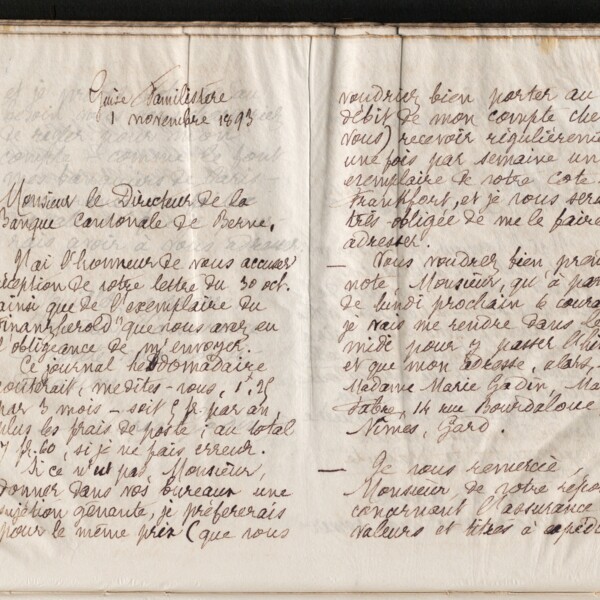 Guise Familistère
1 novembre 1893
Monsieur le Directeur de la
Banque cantonale de Berne,
J'ai l'honneur de vous accuser
réception de votre lettre du 30 oct.
ainsi que de l'exemplaire du
"Finanzherold" que vous avez eu
l'obligeance de m'envoyer.
Ce journal hebdomadaire
couterait, me dites-vous, 1f.25
par 3 mois – soit 5 fr. par an,
plus les frais de poste; au total
7 fr.60, si je ne fais erreur.
Si ce n'est pas, Monsieur,
donner dans vos bureaux une
sujétion gênante, je préfèrerais
pour le même prix (que vous
voudriez bien porter au
débit de mon compte chez
vous) recevoir régulièrement
une fois par semaine un
exemplaire de votre cote
Frankfort, et je vous serais
très-obligée de me le faire
adresser.
— Vous voudrez bien prendre
note, Monsieur, qu'à partir
de lundi prochain 6 courant
je vais me rendre dans le
midi pour y passer l'hiver
et que mon adresse, alors,
Madame Marie Gadin, Ma
Fabre, 14 rue Bourdaloue
Nîmes, Gard.
— Je vous remercie,
Monsieur, de votre réponse
concernant l'assurance
valeurs et titres à expédier